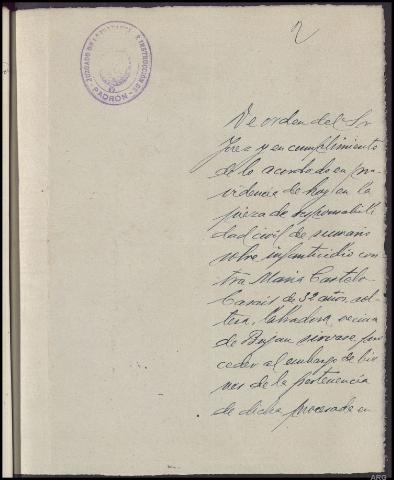 2
JUZGADO DE 1ª INSTANCIA E INSTRUCCIÓN DE
PADRÓN
De orden del Sor
Juez y en cumplimiento
de lo acordado en pro-
videncia de hoy en la
pieza de responsabili
dad civil de sumario
sobre infanticidio con-
tra Maria Castelo
Casais de 32 años, sol-
tera, labradora, vecina
de Bujan sirvase pro
ceder al embargo de bie
nes de la pertenencia
de dicha procesada en
ARG